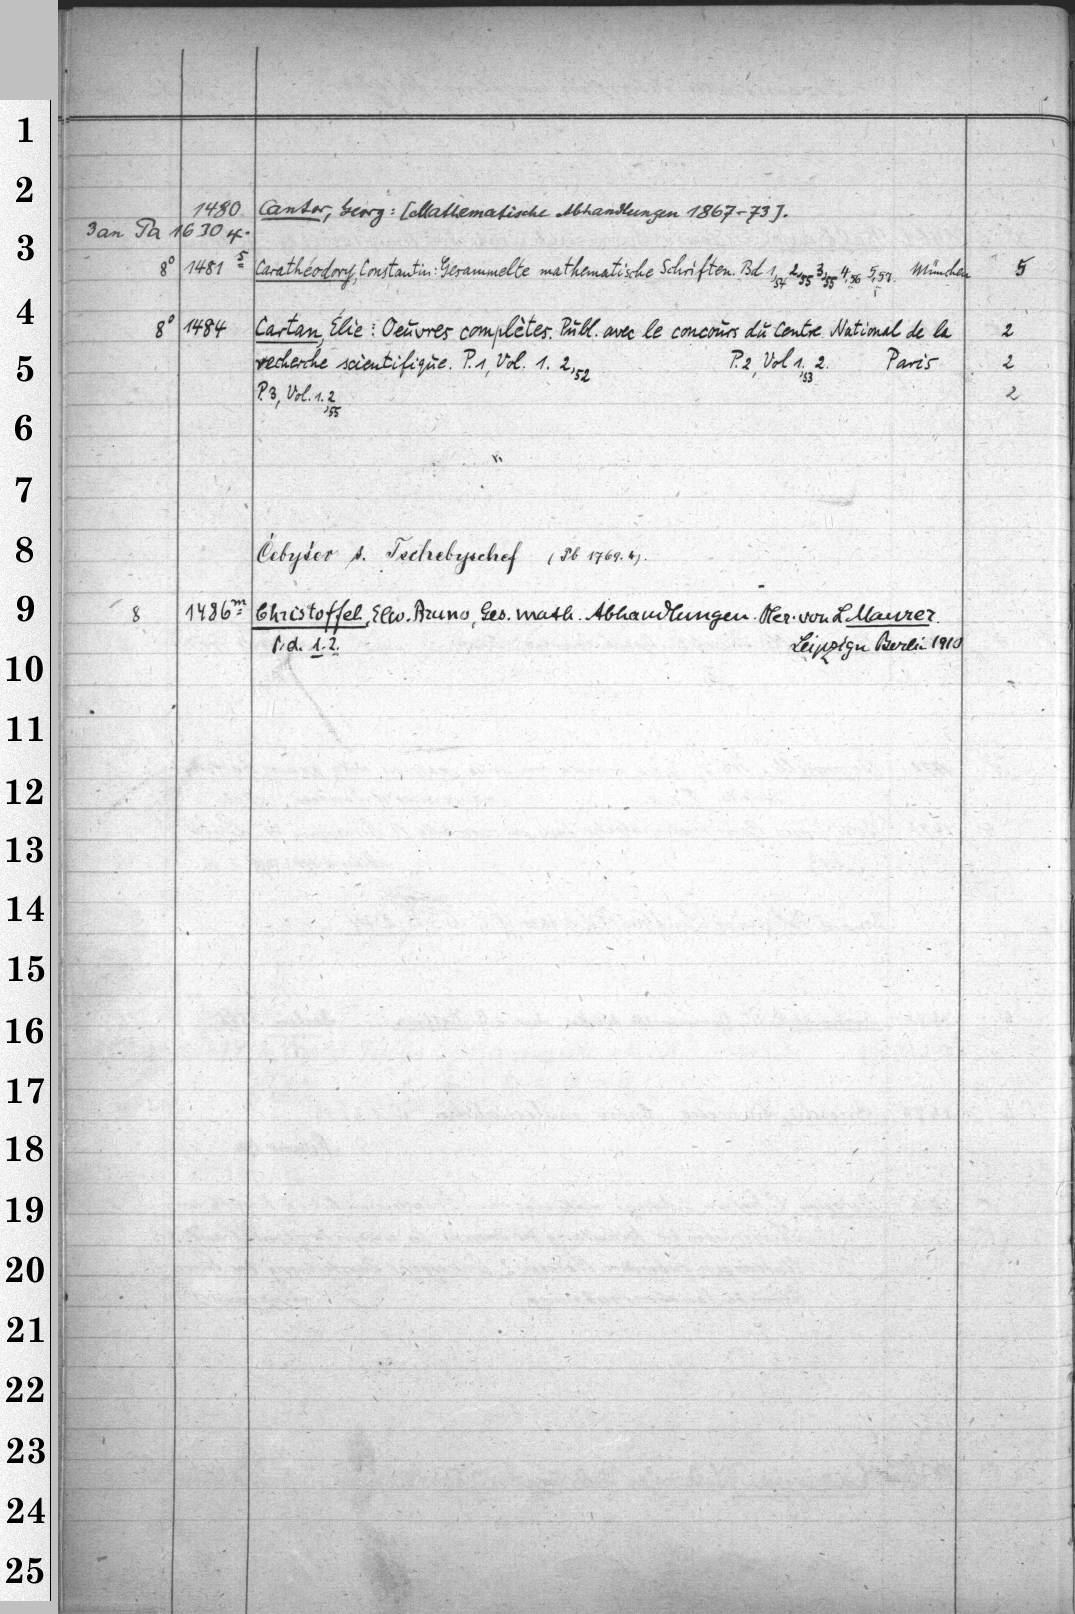 1
2
1480 Cantor, Georg: [Mathematische Abhandlungen 1867-73].
3 an Pa 1630 4.
3
8° 1481 5 Carathéodory, Constantin: Gesammelte mathematische Schriften. Bd 1,54 2,55 3,55 4,56 5,57. München 5
4
8° 1484 Cartan, Élie: Oeuvres complètes. Publ. avec le concours du Centre National de la 2
5
recherche scientifique. P.1, Vol. 1. 2,52 P.2, Vol 1,53 2. Paris 2
P.3, Vol. 1. 2,55 2
6
7
8
Čebyšov s. Tschebyschef (Pb 1769.4).
9
8 1486m Christoffel, Elw. Bruno, Ges. math. Abhandlungen. Her. von L Maurer.
Bd. 1.2. Leipzig u Berlin 1910
10
11
12
13
14
15
16
17
18
19
20
21
22
23
24
25